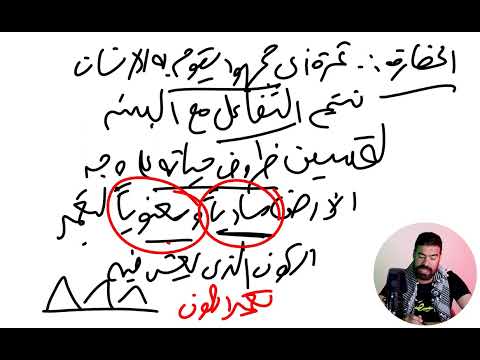 الحضارة :. ثمرة أي جهود يقوم به الإنسان
نتيجة التفاعل مع البيئه
لتحسين ظروف حياته على وجه
الأرض ماديا ومعنويا لتعمير
الكون الذي يعيش فيه